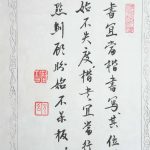 書宜當楷書寫其位
始不失度楷書宜當行
點制顧盼始不呆板